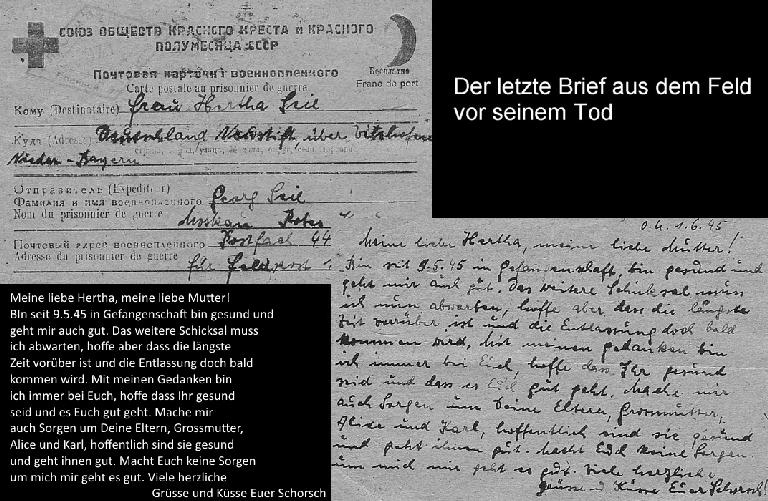 СОЮЗ ОБЩЕСТВ КРАСНОГО КРЕСТА и КРАСНОГО
ПОЛУМЕСЯЦА СССР
Почтовая карточка военнопленного
Carte postale au prisonnier de guerre
Бесплатно
Franc de port
Кому (Destinataire) Frau Hertha Seil
Куда (Adresse) Deutschland Neustift über Vilshofen
Nieder-Bayern
Отправитель (Expéditeur)
Фамилия и имя военнопленного Georg Seil
Nom du prisonnier de guerre
Moskau Rotes
Почтовый адрес военнопленного Postfach 44
Adresse du prisonnier de guerre
für
Der letzte Brief aus dem Feld
vor seinem Tod
1.6.45
Meine liebe Hertha, meine liebe Mutter!
Bin seit 9.5.45 in Gefangenschaft, bin gesund und
geht mir auch gut. Das weitere Schicksal muss
ich nun abwarten, hoffe aber dass die längste
Zeit vorüber ist und die Entlassung doch bald
kommen wird. Mit meinen Gedanken bin
ich immer bei Euch, hoffe dass Ihr gesund
seid und dass es Euch gut geht. Mache mir
auch Sorgen um Deine Eltern, Grossmutter,
Alice und Karl, hoffentlich sind sie gesund
und geht ihnen gut. Macht Euch keine Sorgen
um mich mir geht es gut. Viele herzliche
Grüsse und Küsse Euer Schorsch!
Meine liebe Hertha, meine liebe Mutter!
BIn seit 9.5.45 in Gefangenschaft bin gesund und
geht mir auch gut. Das weitere Schicksal muss
ich abwarten, hoffe aber dass die längste
Zeit vorüber ist und die Entlassung doch bald
kommen wird. Mit meinen Gedanken bin
ich immer bei Euch, hoffe dass Ihr gesund
seid und es Euch gut geht. Mache mir
auch Sorgen um Deine Eltern, Grossmutter,
Alice und Karl, hoffentlich sind sie gesund
und geht ihnen gut. Macht Euch keine Sorgen
um mich mir geht es gut. Viele herzliche
Grüsse und Küsse Euer Schorsch